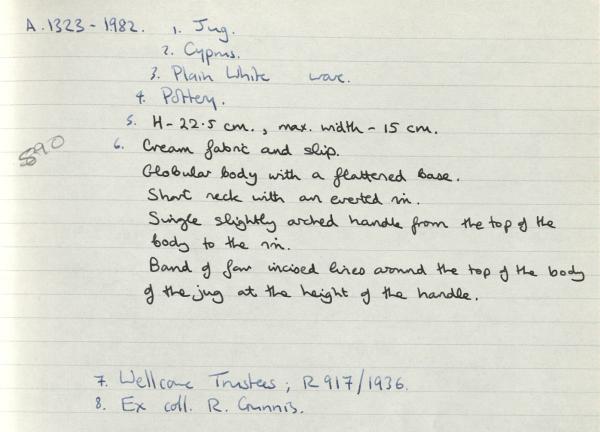 A.1323-1982. 1. Jug.
2. Cyprus.
3. Plain White ware.
4. Pottery.
5. H-22.5 cm., max. width - 15 cm.
890
6. Cream fabric and slip.
Globular body with a flattened base.
Short neck with an everted rim.
Single slightly arched handle from the top of the
body to the rim.
Band of four incised lines around the top of the body
of the jug at the height of the handle.
7. Wellcome Trustees; R917/1936.
8. Ex coll. R. Gunnis.